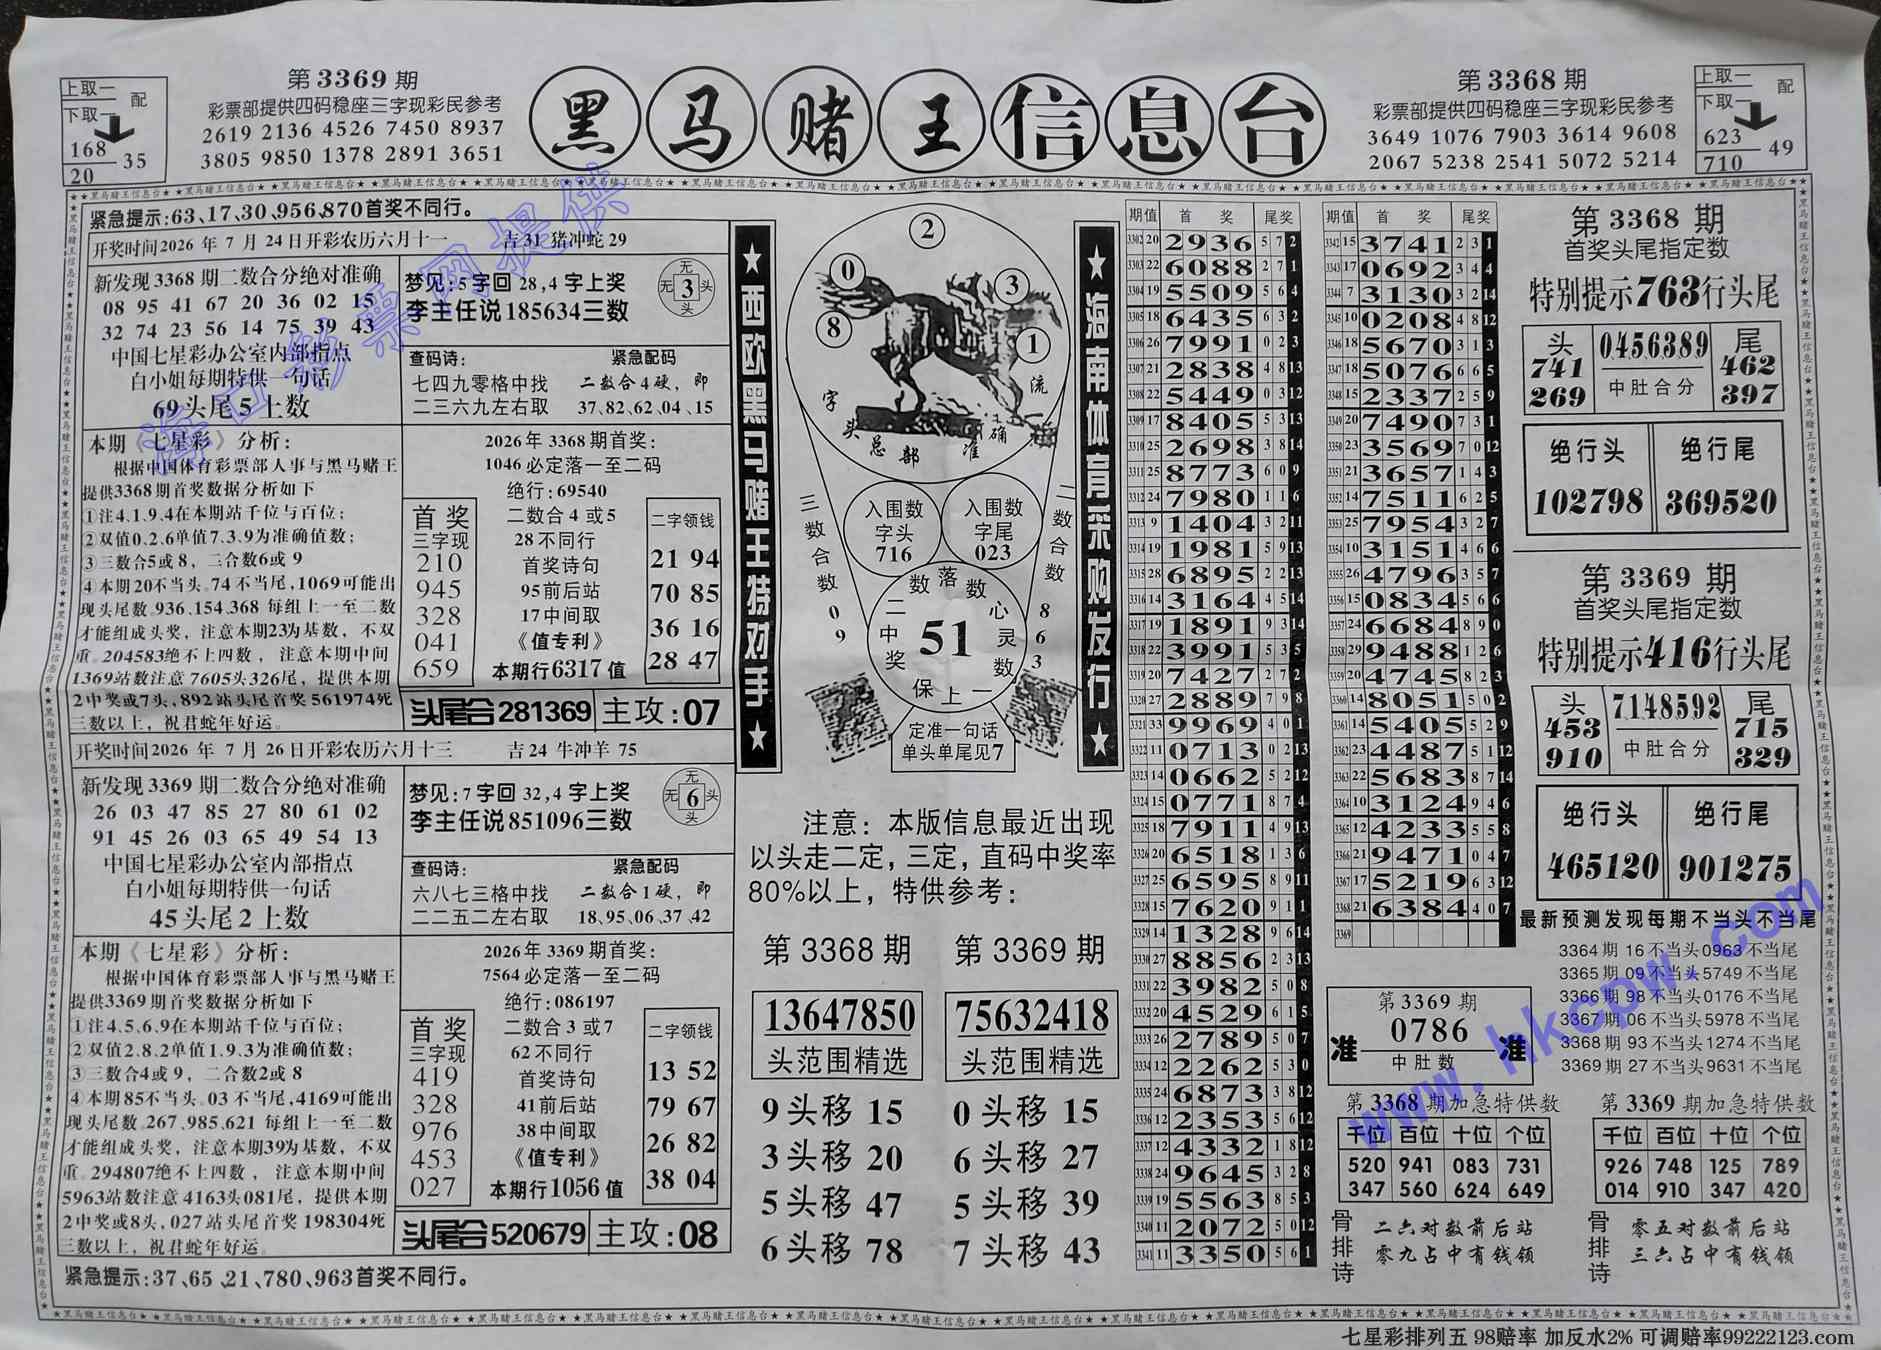 上取一
下取一
配
168
20
35
第3369期
彩票部提供四码稳座三字现彩民参考
2619 2136 4526 7450 8937
3805 9850 1378 2891 3651
黑马赌王信息台
第3368期
彩票部提供四码稳座三字现彩民参考
3649 1076 7903 3614 9608
2067 5238 2541 5072 5214
上取一
下取一
配
623
710
49
紧急提示:63、17、30、956、870首奖不同行。
开奖时间2026 年 7 月 24日开彩农历六月十一 吉31 猪冲蛇 29
新发现 3368 期二数合分绝对准确
08 95 41 67 20 36 02 15
32 74 23 56 14 75 39 43
中国七星彩办公室内部指点
白小姐每期特供一句话
69头尾5上数
梦见:5字回 28,4字上奖
李主任说185634三数
无
无 3 头
头
查码诗:
七四九零格中找
二三六九左右取
紧急配码
二数合4硬，即
37、82、62、04、15
本期《七星彩》分析:
根据中国体育彩票部人事与黑马赌王
提供3368期首奖数据分析如下
①注4.1.9.4在本期站千位与百位;
②双值0.2.6单值7.3.9为准确值数;
③三数合5或8，二合数6或9
④本期20不当头。74不当尾,1069可能出
现头尾数。936、154、368 每组上一至二数
才能组成头奖，注意本期23为基数，不双
重。204583绝不上四数，注意本期中间
1369站数注意 7605头326尾，提供本期
2中奖或7头,892站头尾首奖561974死
三数以上，祝君蛇年好运。
2026年3368期首奖:
1046必定落一至二码
绝行:69540
首奖
三字现
210
945
328
041
659
二数合4或5
28不同行
首奖诗句
95前后站
17中间取
《值专利》
本期行6317值
二字领钱
21 94
70 85
36 16
28 47
头尾合281369 主攻:07
开奖时间2026 年 7 月 26日开彩农历六月十三 吉24 牛冲羊 75
新发现 3369 期二数合分绝对准确
26 03 47 85 27 80 61 02
91 45 26 03 65 49 54 13
中国七星彩办公室内部指点
白小姐每期特供一句话
45头尾2上数
梦见:7字回 32,4字上奖
李主任说851096三数
无
无 6 头
头
查码诗:
六八七三格中找
二二五二左右取
紧急配码
二数合1硬，即
18、95、06、37、42
本期《七星彩》分析:
根据中国体育彩票部人事与黑马赌王
提供3369期首奖数据分析如下
①注4.5.6.9在本期站千位与百位;
②双值2.8.2单值1.9.3为准确值数;
③三数合4或9，二合数2或8
④本期85不当头。03不当尾,4169可能出
现头尾数。267、985、621 每组上一至二数
才能组成头奖，注意本期39为基数，不双
重。294807绝不上四数，注意本期中间
5963站数注意 4163头081尾，提供本期
2中奖或8头,027站头尾首奖198304死
三数以上，祝君蛇年好运。
2026年3369期首奖:
7564必定落一至二码
绝行:086197
首奖
三字现
419
328
976
453
027
二数合3或7
62不同行
首奖诗句
41前后站
38中间取
《值专利》
本期行1056值
二字领钱
13 52
79 67
26 82
38 04
头尾合520679 主攻:08
紧急提示:37、65、21、780、963首奖不同行。
★西欧黑马赌王特对手★
2
0
3
8
1
字头总部准确流
三数合数09
二数合数863
入围数
字头
716
入围数
字尾
023
数落数
二中奖
51
心灵数
保上一
定准一句话
单头单尾见7
★海南体育采购发行★
注意：本版信息最近出现
以头走二定，三定，直码中奖率
80%以上，特供参考：
第3368期
13647850
头范围精选
9头移15
3头移20
5头移47
6头移78
第3369期
75632418
头范围精选
0头移15
6头移27
5头移39
7头移43
期值 首奖 尾奖
3302 20 2936 5 7 2
3303 22 6088 2 7 1
3304 19 5509 5 6 4
3305 18 6435 6 3 2
3306 26 7991 0 2 3
3307 21 2838 4 8 13
3308 22 5449 0 3 12
3309 17 8405 5 3 13
3310 25 2698 3 8 14
3311 25 8773 6 0 9
3312 24 7980 1 1 6
3313 9 1404 3 2 11
3314 19 1981 5 9 13
3315 28 6895 2 2 13
3316 14 3164 4 5 14
3317 19 1891 9 3 14
3318 22 3991 5 3 5
3319 20 7427 2 7 2
3320 27 2889 7 9 8
3321 33 9969 4 0 1
3322 11 0713 0 2 13
3323 14 0662 5 2 12
3324 15 0771 8 7 4
3325 18 7911 4 9 13
3326 20 6518 1 3 6
3327 25 6595 8 9 11
3328 15 7620 9 1 1
3329 14 1328 9 6 14
3330 27 8856 2 3 13
3331 22 3982 5 0 8
3332 20 4529 6 1 5
3333 26 2789 5 0 7
3334 12 2262 5 3 0
3335 24 6873 3 8 12
3336 12 2353 5 6 12
3337 12 4332 1 8 12
3338 24 9645 3 2 8
3339 19 5563 8 5 3
3340 11 2072 5 0 12
3341 11 3350 5 6 1
期值 首奖 尾奖
3342 15 3741 2 3 1
3343 17 0692 3 4 4
3344 7 3130 3 2 14
3345 10 0208 4 8 12
3346 18 5670 3 1 3
3347 18 5076 6 6 5
3348 15 2337 2 5 9
3349 20 7490 7 3 1
3350 23 3569 7 0 12
3351 21 3657 1 4 3
3352 14 7511 6 2 5
3353 25 7954 3 2 7
3354 10 3151 4 6 6
3355 26 4796 3 5 7
3356 15 0834 5 6 6
3357 24 6684 8 9 0
3358 29 9488 1 2 6
3359 20 4745 8 2 3
3360 14 8051 5 0 2
3361 14 5405 5 2 9
3362 23 4487 5 1 12
3363 22 5683 8 7 14
3364 10 3124 9 4 6
3365 12 4233 5 5 8
3366 21 9471 0 4 7
3367 17 5219 6 3 12
3368 21 6384 4 0 7
3369
第3369期
准 0786 准
中肚数
第3368期
首奖头尾指定数
特别提示763行头尾
头
741
269
0456389
中肚合分
尾
462
397
绝行头
102798
绝行尾
369520
第3369期
首奖头尾指定数
特别提示416行头尾
头
453
910
7148592
中肚合分
尾
715
329
绝行头
465120
绝行尾
901275
最新预测发现每期不当头不当尾
3364期 16不当头0963不当尾
3365期 09不当头5749不当尾
3366期 98不当头0176不当尾
3367期 06不当头5978不当尾
3368期 93不当头1274不当尾
3369期 27不当头9631不当尾
第3368期加急特供数
千位 百位 十位 个位
520 941 083 731
347 560 624 649
骨排诗
二六对数前后站
零九占中有钱领
第3369期加急特供数
千位 百位 十位 个位
926 748 125 789
014 910 347 420
骨排诗
零五对数前后站
三六占中有钱领
海口彩票网提供
www.hkcpw.com
七星彩排列五 98赔率 加反水2% 可调赔率99222123.com